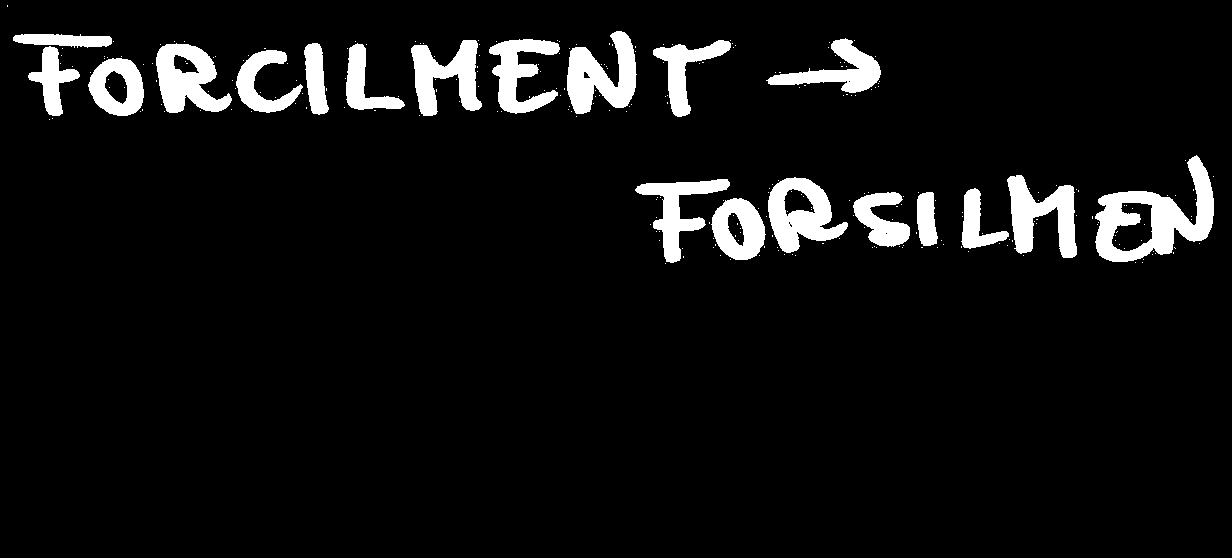 FORCILMENT →
FORSILMEN